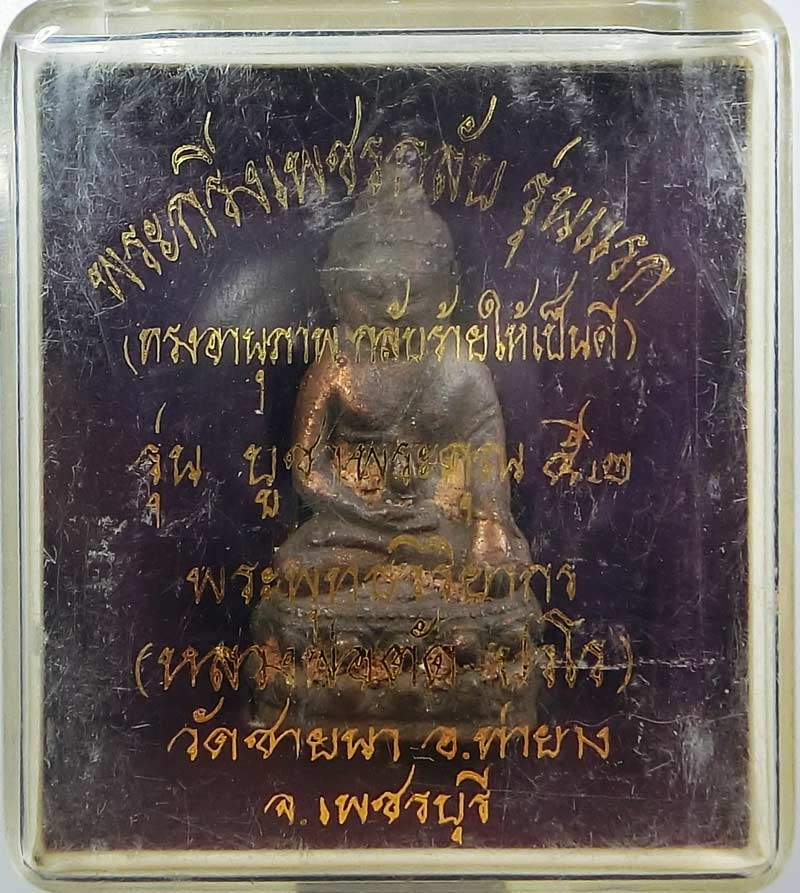 พระกริ่งเพชรกลับ รุ่นแรก
(ทรงอานุภาพ กลับร้ายให้เป็นดี)
รุ่น บูชาพระคุณ ปี๒
พระพุทธวิริยากร
(หลวงพ่อตัด ปวโร)
วัดชายนา อ.ท่ายาง
จ.เพชรบุรี